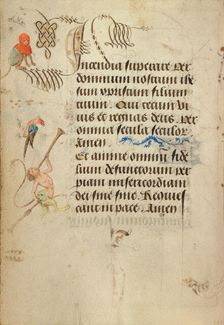 Incendia superare per
dominum nostrum ihe
sum xpristum filium
tuum. Qui tecum vi
uit et regnat deus. per
omnia secula seculor
Amen.
Et anime omniu fide
lium defunctorum per
piam misericordiam
dei sine fine. Requies
cant in pace. Amen